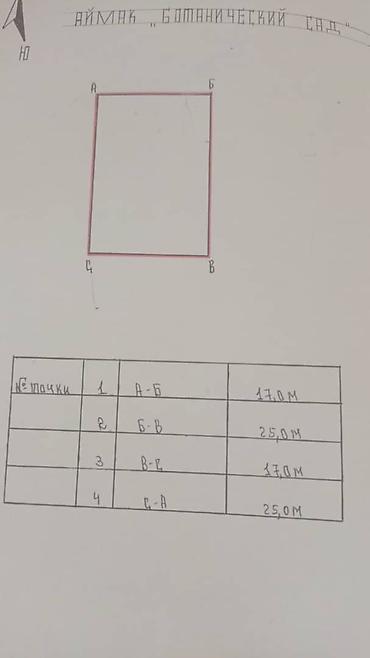 АЙМАК „БОТАНИЧЕСКИЙ САД"
Ю
А
Б
С
В
№ точки 1 А-Б 17,0 м
2 Б-В 25,0 м
3 В-С 17,0 м
4 С-А 25,0 м